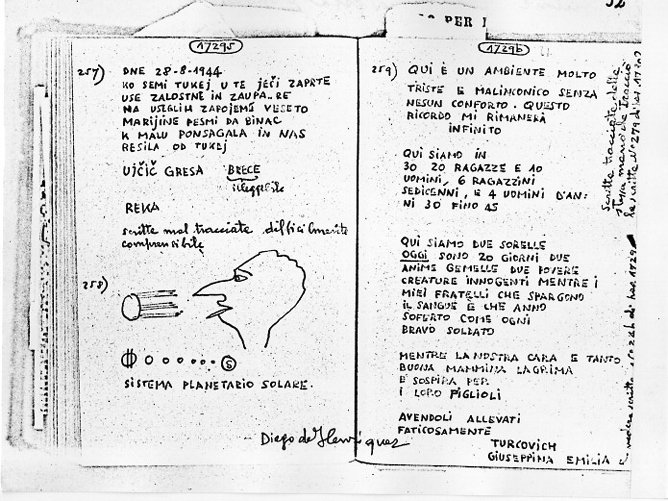 52
PER
17295
257) DNE 28-8-1944
KO SEMI TUKEJ U TE JEČI ZAPRTE
USE ZALOSTNE IN ZAUPA. RE
NA USEGLIH ZAPOJEMO VESETO
MARIJINE PESMI DA BINAC
K MALU PONSAGALA IN NAS
RESILA OD TUKEJ
UJČIČ GRESA BRECE
illeggibile
REKA
scritte mal tracciate difficilmente
comprensibile
258)
SISTEMA PLANETARIO SOLARE.
Diego de Henriquez
17296
259) QUI È UN AMBIENTE MOLTO
TRISTE E MALINCONICO SENZA
NESUN CONFORTO. QUESTO
RICORDO MI RIMANERÀ
INFINITO
QUI SIAMO IN
30 20 RAGAZZE E 10
UOMINI, 6 RAGAZZINI
SEDICENNI, E 4 UOMINI D'AN-
NI 30 FINO 45
QUI SIAMO DUE SORELLE
OGGI SONO 20 GIORNI DUE
ANIME GEMELLE DUE POVERE
CREATURE INNOCENTI MENTRE I
MIEI FRATELLI CHE SPARGONO
IL SANGUE E CHE ANNO
SOFERTO COME OGNI
BRAVO SOLDATO
MENTRE LA NOSTRA CARA E TANTO
BUONA MAMMINA LAGRIMA
E SOSPIRA PER
I LORO FIGLIOLI
AVENDOLI ALLEVATI
FATICOSAMENTE
TURCOVICH
GIUSEPPINA EMILIA
scritte tracciate dalla
stessa mano che tracciò
la scritta N°279 di